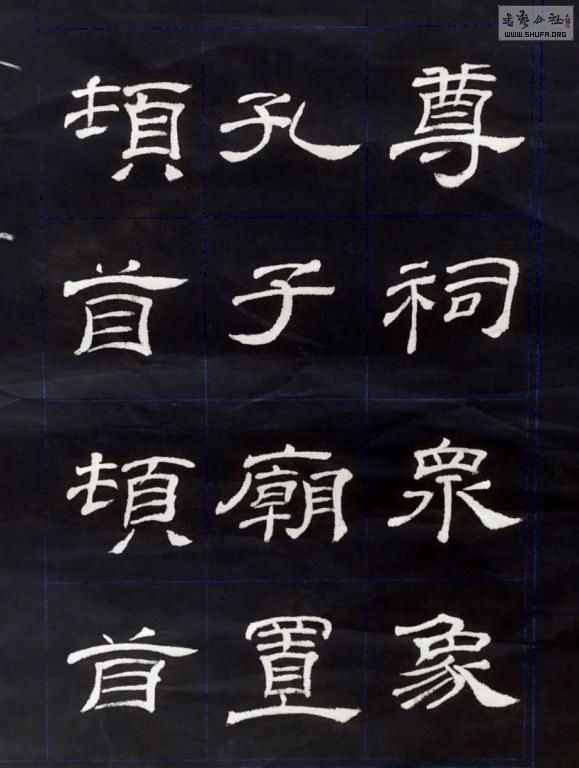 尊祠眾象
孔子廟置
頓首頓首
書藝公社
WWW.SHUFA.ORG